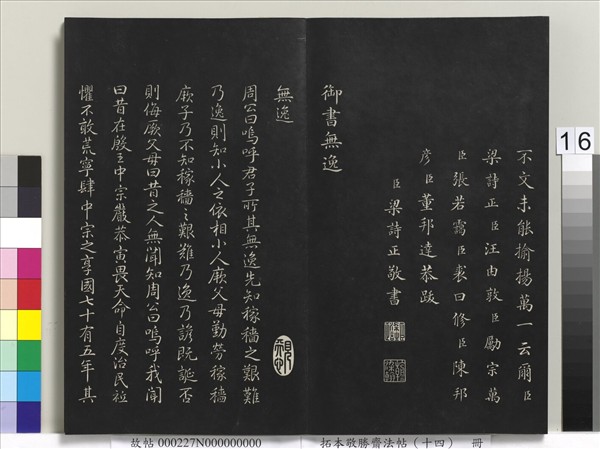 不文未能揄揚萬一云爾臣
梁詩正臣汪由敦臣勵宗萬
臣張若靄臣裘曰修臣陳邦
彥臣董邦達恭跋
臣梁詩正敬書
御書無逸
無逸
周公曰嗚呼君子所其無逸先知稼穡之艱難
乃逸則知小人之依相小人厥父母勤勞稼穡
厥子乃不知稼穡之艱難乃逸乃諺既誕否
則侮厥父母曰昔之人無聞知周公曰嗚呼我聞
曰昔在殷王中宗嚴恭寅畏天命自度治民祗
懼不敢荒寧肆中宗之享國七十有五年其
16
故帖 000227N000000000 拓本敬勝齋法帖(十四) 冊